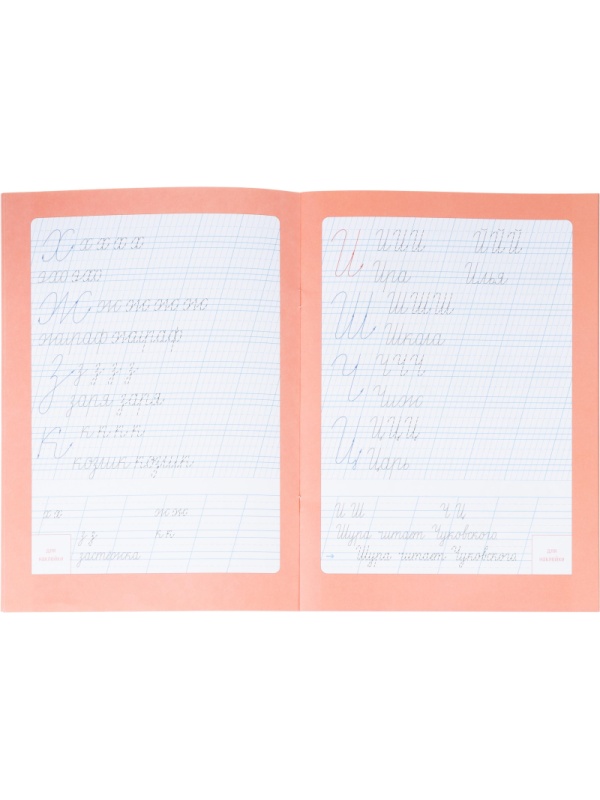 Х х х х х
эхо эхо
Ж ж ж ж ж
жираф жираф
З з з з з
заря заря
К к к к к
козлик козлик
х х ж ж
з з к к
застёжка
для наклейки
И И И И Й Й Й
Ира Илья
Ш Ш Ш Ш
Школа
Ч Ч Ч Ч
Чиж
Ц Ц Ц Ц
Царь
И Ш Ч Ц
Шура читает Чуковского.
Шура читает Чуковского.
для наклейки